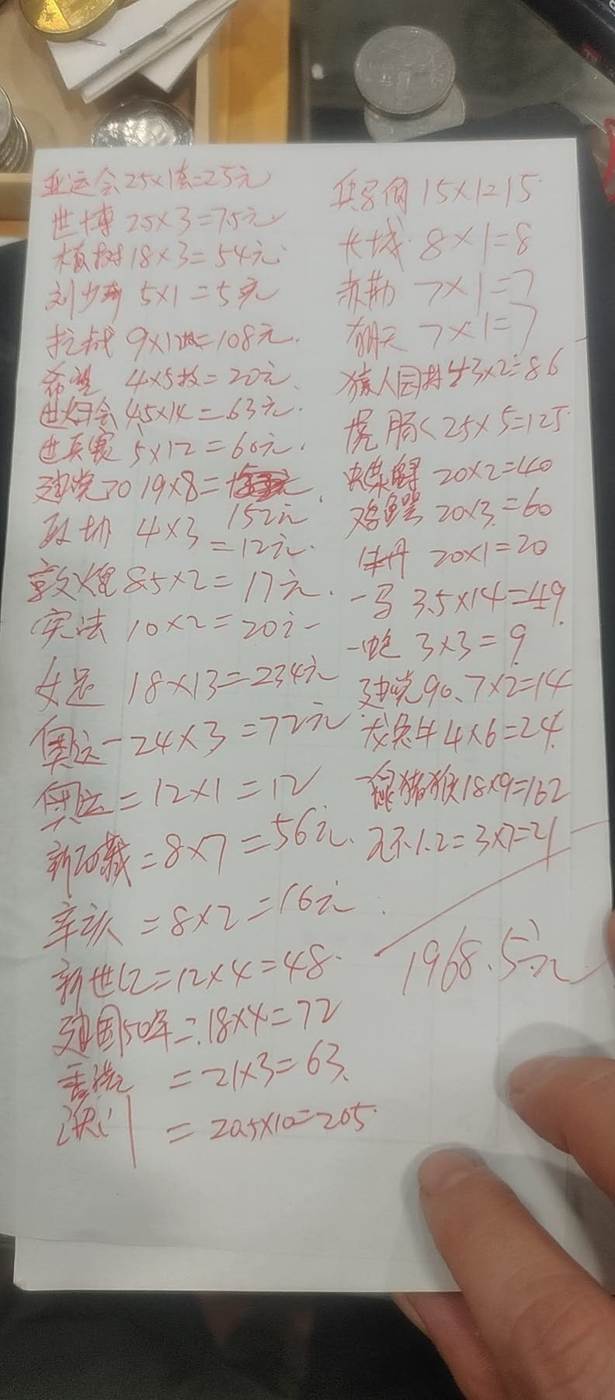 亚运会 25×1套=25元
世博 25×3=75元
植树 18×3=54元
刘少奇 5×1=5元
拉萨 9×12枚=108元
希望 4×5枚=20元
世妇会 4.5×14=63元
世乒赛 5×12=60元
建党70 19×8=
152元
政协 4×3=12元
敦煌 8.5×2=17元
宪法 10×2=20元
女足 18×13=234元
奥运一 24×3=72元
奥运二 12×1=12
新西藏=8×7=56元
辛亥=8×2=16元
新世纪=12×4=48
建国50年=18×4=72
香港=21×3=63
澳门=20.5×10=205
兵马俑 15×1=15
长城 8×1=8
苏勒 7×1=7
朝天 7×1=7
猿人园林 43×2=86
虎 25×5=125
20×2=40
20×3=60
牡丹 20×1=20
一马 3.5×14=49
一蛇 3×3=9
建党90 7×2=14
龙兔牛 4×6=24
猪猴 18×9=162
1.2=3×7=21
1968.5元